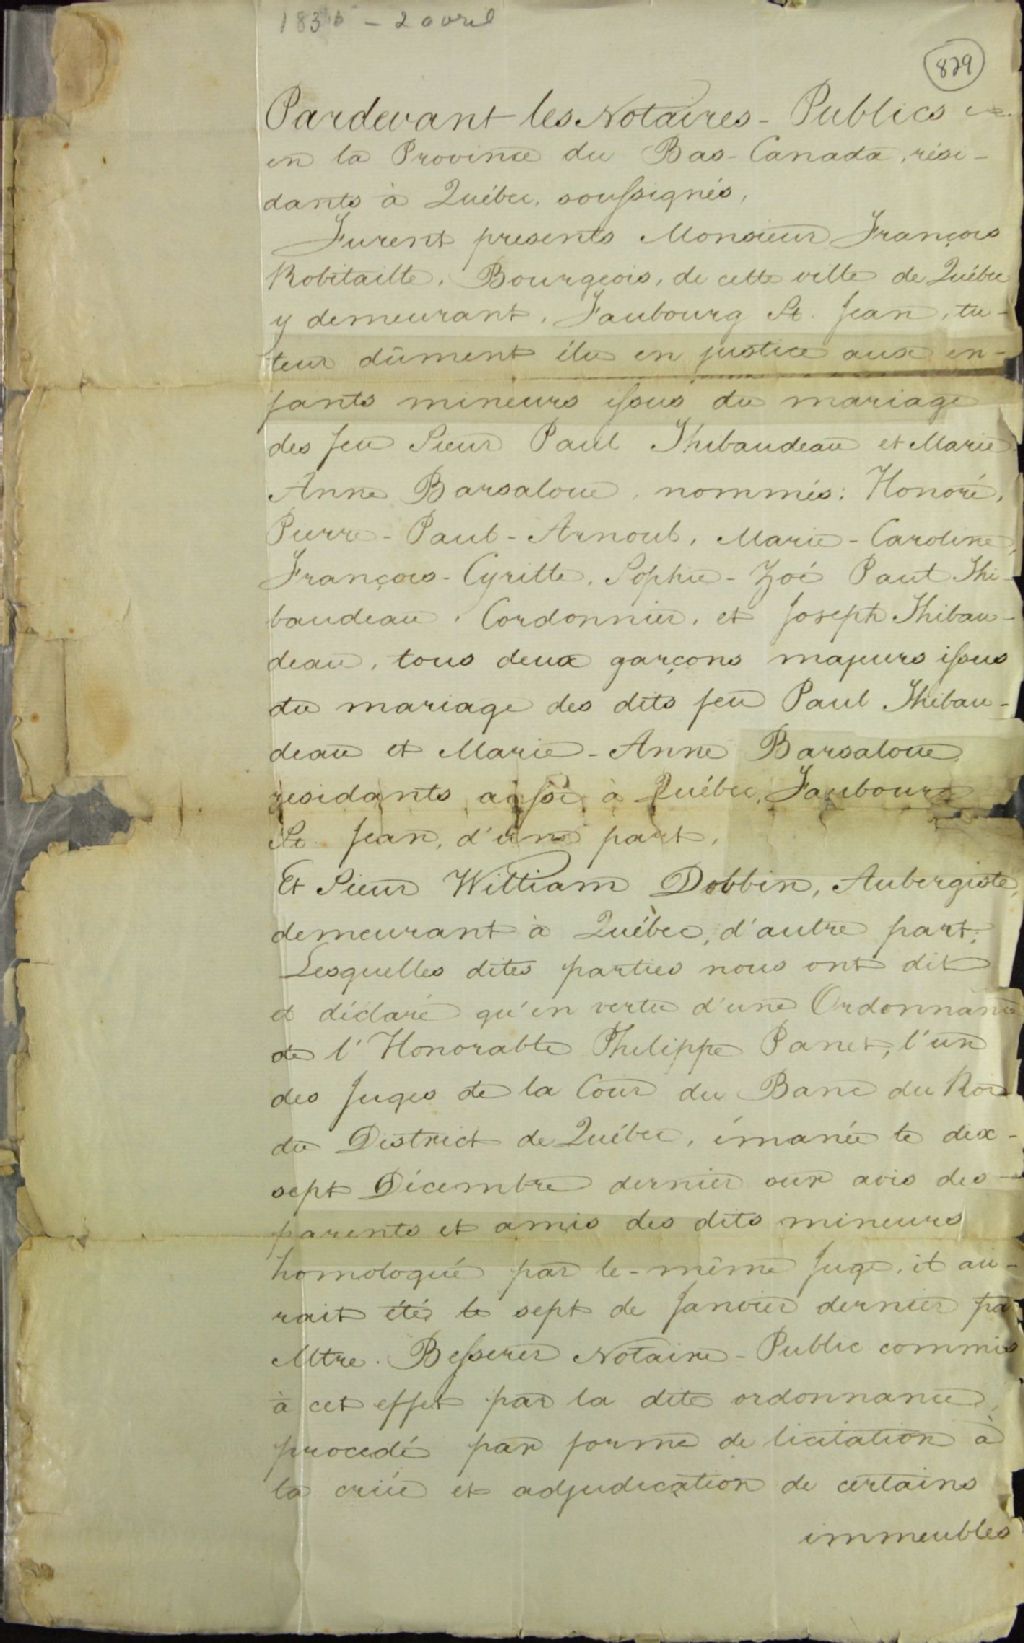 1835 - 2 avril
829
Pardevant les Notaires - Publics
en la Province du Bas-Canada, rési-
dants à Québec, soussignés,
Furent presents Monsieur François
Robitaille, Bourgeois, de cette ville de Québec
y demeurant, Faubourg St. Jean, tu-
teur dûment élu en justice aux en-
fants mineurs issus du mariage
des feu Sieur Paul Thibaudeau et Marie
Anne Barsaloue, nommés: Honoré,
Pierre - Paul - Arnoul, Marie - Caroline,
François - Cyrille, Sophie - Zoé Paul Thi-
baudeau, Cordonnier, et Joseph Thibau-
deau, tous deux garçons majeurs issus
du mariage des dits feu Paul Thibau-
deau et Marie - Anne Barsaloue
résidants aussi à Québec, Faubourg
St. Jean, d'une part,
Et Sieur William Dobbin, Aubergiste,
demeurant à Québec, d'autre part.
Lesquelles dites parties nous ont dit
et déclaré qu'en vertu d'une Ordonnance
de l'Honorable Philippe Panet, l'un
des Juges de la Cour du Banc du Roi
du District de Québec, émanée le dix-
sept Décembre dernier sur avis des
parents et amis des dits mineurs
homologué par le-même Juge, il au-
rait été le sept de Janvier dernier par
Mtre. Besserer Notaire - Public commis
à cet effet par la dite ordonnance,
procedé par forme de licitation à
la criée et adjudication de certains
immeubles